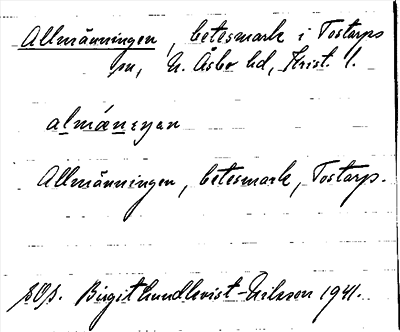 Allmänningen, betesmark i Tostarps
sn, N. Åsbo hd, Krist. l.
almánεŋan
Allmänningen, betesmark, Tostarp.
Birgit Lundkvist-Nilsson 1941.